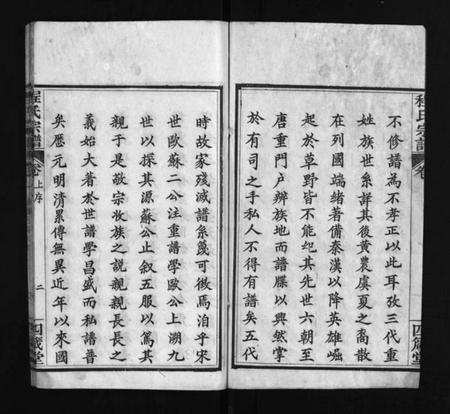 程氏宗譜
卷
四箴堂
不修譜為不孝正以此耳孜三代重
姓族世系詳其後黃農虞夏之裔散
在列國端緒著備秦漢以降英雄崛
起於草野皆不能紀其先世六朝至
唐重門户辨族地而譜牒以興然掌
於有司之手私人不得有譜矣五代
時故家殘滅譜系篾可徵焉洎乎宋
世歐蘇二公注重譜學歐公上溯九
世以探其源蘇公止叙五服以篤其
親于是敬宗收族之說親親長長之
義始大著於世譜學昌盛而私譜普
矣歷元明清累傳無異近年以來國
程氏宗譜
卷上序
二
四箴堂